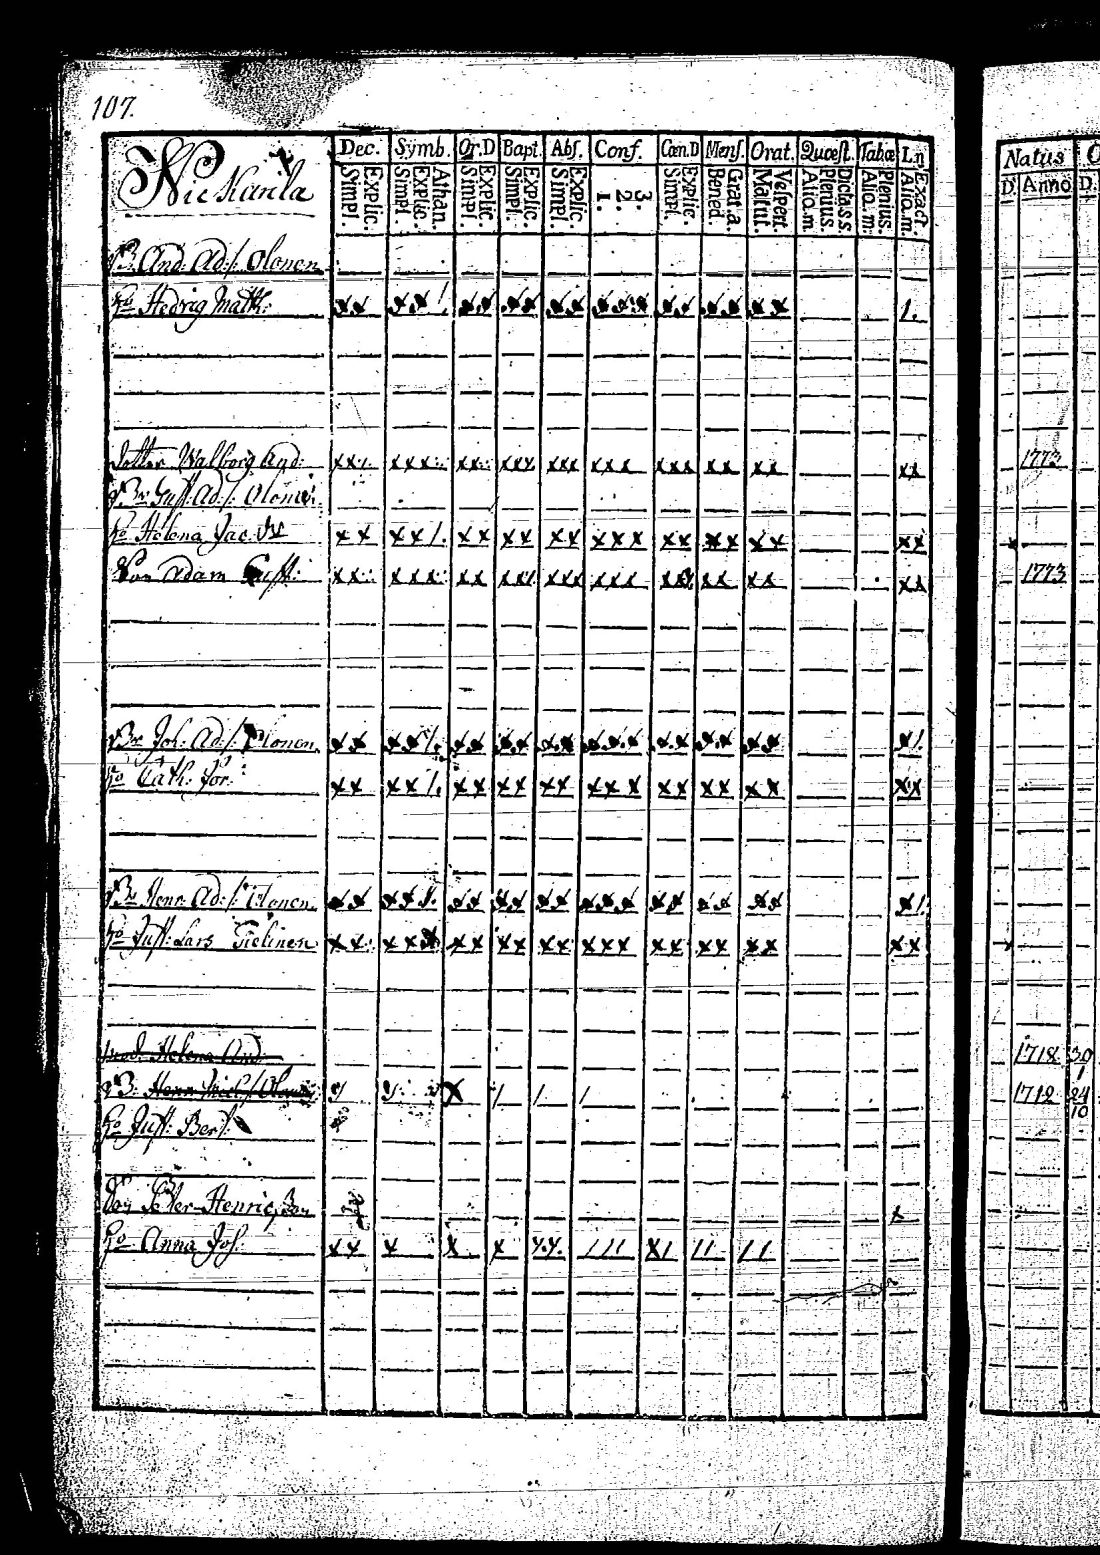 107.
Nickarila
Dec. Symb. Or.D Bapt. Abs. Conf. Cœn.D Mens. Orat. Quæst. Tabæ L.n
Explic. Simpl. Athan. Explic. Simpl. Explic. Simpl. Explic. Simpl. Explic. Simpl. 3. 2. 1. Explic. Simpl. Grat.a. Bened. Vespert. Matut. Dicta s.s. Plenius. Alio.m Plenius. Alio.m. Exact. Alio.m.
Natus
D Anno D.
B. And: Ad:s: Olonen
ho Hedvig Matth: xx xx/. xx xx xx xxx xx xx xx 1.
dotter Walborg And: xx xxx xx xxx xxx xxx xxx xx xx xx 1773
Br Gust. Ad:s: Olonen
ho Helena Jac. xx xx/. xx xx xx xxx xx xx xx xx
Son Adam Gust: xx xxx xx xxx xxx xxx xxx xx xx xx 1773
Br Joh: Ad:s: Olonen xx xx/. xx xx xx xxx xx xx xx x/.
ho Cath: Jör: xx xx/. xx xx xx xxx xx xx xx xx
Br Henr. Ad:s: Olonen xx xxx xx xx xx xxx xx xx xx x/.
ho Just: Lars Tielinen xx xxx xx xx xx xxx xx xx xx xx
mod. Helena And: 1718 30 1
B. Henr Mich:s Olonen x / / / 1712 24 10
ho Just: Bert:
Son Peter Henricsson x
ho Anna Joh: xx x x x x.x. /// x/ // //